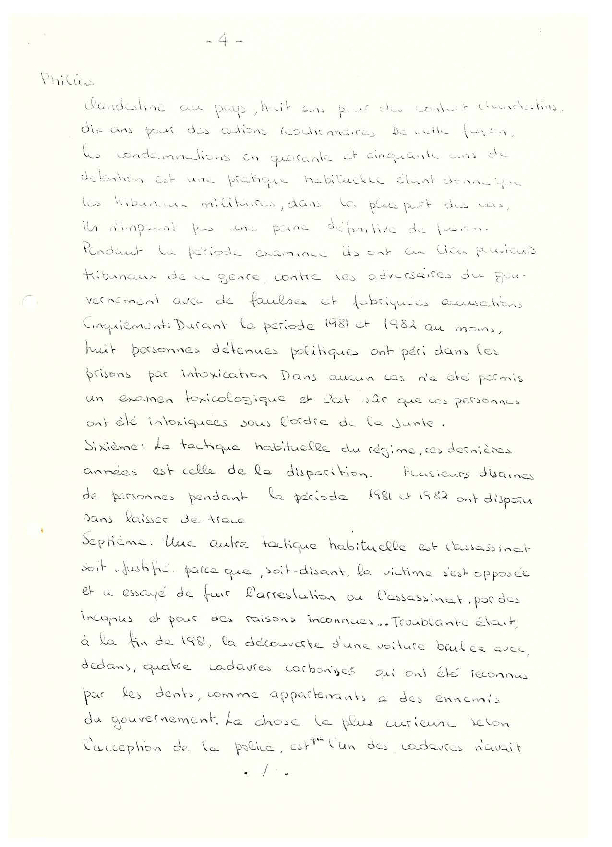 - 4 -
clandestine au pays, huit ans pour des contact clandestins,
dix ans pour des actions réactionnaires De cette façon,
les condamnations en quarante et cinquante ans de
détention est une pratique habituelle étant donné que
les tribunaux militaires, dans la pluspart des cas,
ils n'imposent pas une peine définitive de
Pendant la période examinée ils ont eu lieu plusieurs
tribunaux de ce genre contre les adversaires du gou-
vernement avec de faulses et fabriquées accusations
Cinquièment: Durant la période 1981 et 1982 au moins,
huit personnes détenues politiques ont péri dans les
prisons par intoxication Dans aucun cas n'a été permis
un examen toxicologique et c'est sûr que ces personnes
ont été intoxiquées sous l'ordre de la Junte.
Sixième: La tactique habituelle du régime, ces dernières
années est celle de la disparition. Plusieurs disaines
de personnes pendant la période 1981 et 1982 ont disparu
sans laisser de trace
Septième. Une autre tactique habituelle est l'assassinat
soit justifié parce que, soit-disant, la victime s'est opposée
et a essayé de fuir l'arrestation ou l'assassinat par des
inconnus et pour des raisons inconnues... Troublante était,
à la fin de 1981, la découverte d'une voiture brulée avec,
dedans, quatre cadavres carbonisés qui ont été reconnus
par les dents, comme appartenants a des ennemis
du gouvernement. La chose la plus curieuse selon
l'acception de la police, est que l'un des cadavres n'avait
. / .